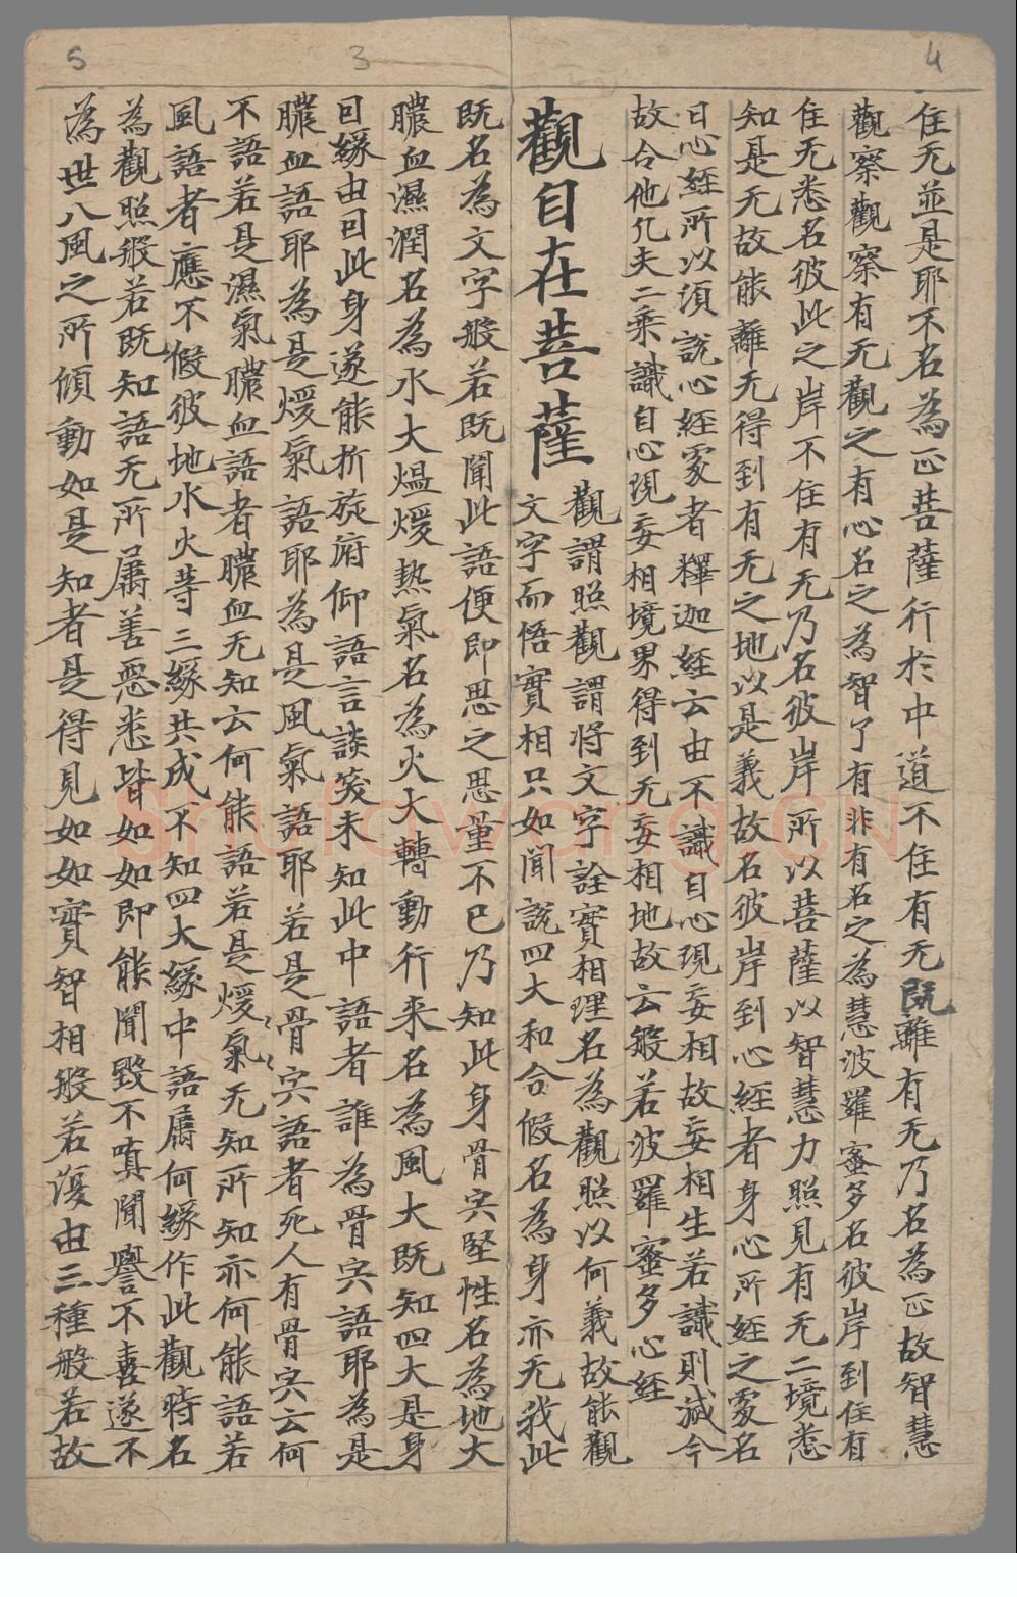 5
3
4
住无並是耶不名為正菩薩行於中道不住有无既離有无乃名為正故智慧
觀察觀察有无觀之有心名之為智了有非有名之為慧波羅蜜多名彼岸到住有
住无悉名彼此之岸不住有无乃名彼岸所以菩薩以智慧力照見有无二境悉
知是无故能離无得到有无之地以是義故名彼岸到心經者身心所經之處名
曰心經所以須說心經處者釋迦經云由不識自心現妄相故妄相生若識則滅今
故令他凡夫二乘識自心現妄相境界得到无妄相地故云般若波羅蜜多心經
觀自在菩薩
觀謂照觀謂將文字詮實相理名為觀照以何義故能觀
文字而悟實相只如聞說四大和合假名為身亦无我此
既名為文字般若既聞此語便即思之思量不已乃知此身骨宍堅性名為地大
膿血濕潤名為水大熅煖熱氣名為火大轉動行来名為風大既知四大是身
曰緣由曰此身遂能折旋府仰語言談笑未知此中語者誰為骨宍語耶為是
膿血語耶為是煖氣語耶為是風氣語耶若是骨宍語者死人有骨宍云何
不語若是濕氣膿血語者膿血无知云何能語若是煖氣无知所知亦何能語若
風語者應不假彼地水火等三緣共成不知四大緣中語屬何緣作此觀時名
為觀照般若既知語无所屬善惡悉皆如如即能聞毀不嗔聞譽不喜遂不
為世八風之所傾動如是知者是得見如如實智相般若復由三種般若故
Shufawang.CN